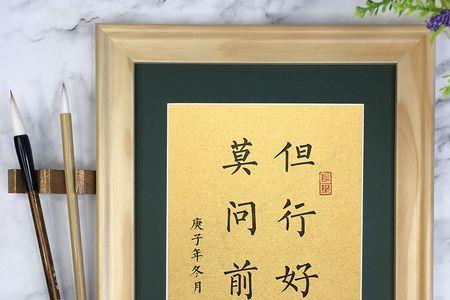 但行好
莫问前
庚子年冬月